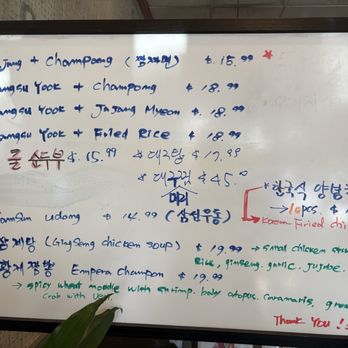 Jajang + Champong (짬짜면) $.15.99
Tangsu Yook + Champong $.18.99
Tangsu Yook + Jajang Myeon $.18.99
Tangsu Yook + Fried Rice $.18.99
굴 순두부 $.15.99 * 대구탕 $17.99
* 대구찜 $45.00
머리
* 한국식 양념
→ 10pcs. $
Korean Fried Chi
Samsun udong $.14.99 (삼선우동)
삼계탕 (GingSeng chicken soup) $19.99 → small chicken
Rice, ginseng. garlic. Jujube.
황제짬뽕 Empera Champon $19.99
→ Spicy wheat noodle with shrimp. baby octopus. caramaris, gree
Crab with
Thank You!